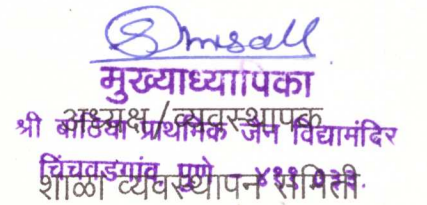 मुख्याध्यापिका
अध्यक्ष / व्यवस्थापक
श्री बाठिया प्राथमिक जैन विद्यामंदिर
चिंचवडगांव, पुणे - ४११ ०३३.
शाळा व्यवस्थापन समिती